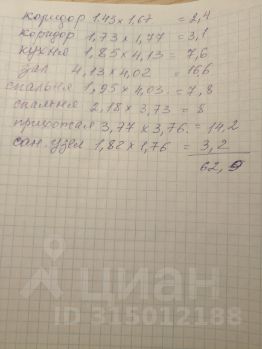 коридор 1.43 x 1,67 = 2,4
коридор 1,73 x 1,77 = 3,1
кухня 1,85 x 4,13 = 7,6
зал 4,13 x 4,02 = 16,6
спальня 1,95 x 4,03. = 7,8
спальня 2,18 x 3,73 = 8
прихожая 3,77 x 3,76. = 14,2
сан. узел 1,82 x 1,76 = 3,2
62,9
ЦИАН
ID 315012188